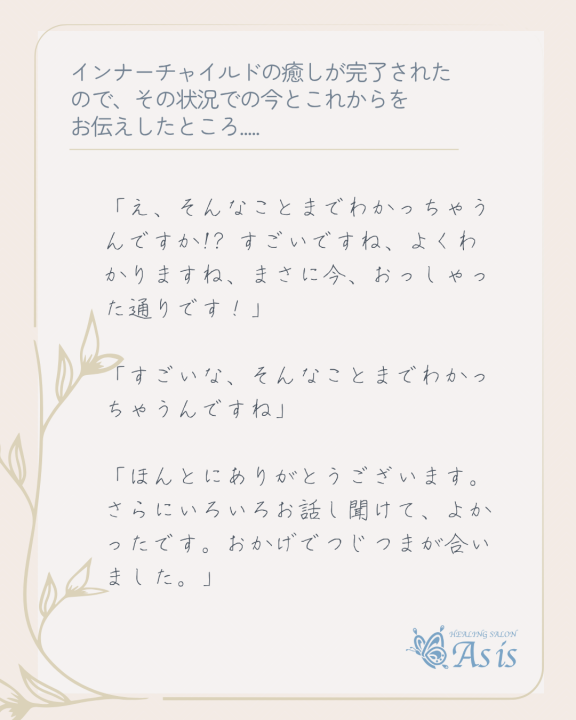 インナーチャイルドの癒しが完了された
ので、その状況での今とこれからを
お伝えしたところ.....
「え、そんなことまでわかっちゃう
んですか!? すごいですね、よくわ
かりますね、まさに今、おっしゃっ
た通りです！」
「すごいな、そんなことまでわかっ
ちゃうんですね」
「ほんとにありがとうございます。
さらにいろいろお話し聞けて、よか
ったです。おかげでつじつまが合い
ました。」
HEALING SALON
As is